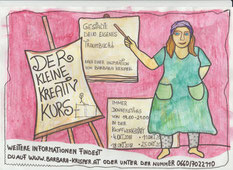 DER
KLEINE
KREATIV
KURS
GESTALTE
DEIN EIGENES
TRAUMBUCH
VON BARBARA KRISMER
IMMER
DONNERSTAGS
VON 19.00-21.00
IN DER
WEITERE INFORMATIONEN FINDEST
DU AUF WWW.BARBARA-KRISMER.AT ODER UNTER DER NUMMER 0660/7022710